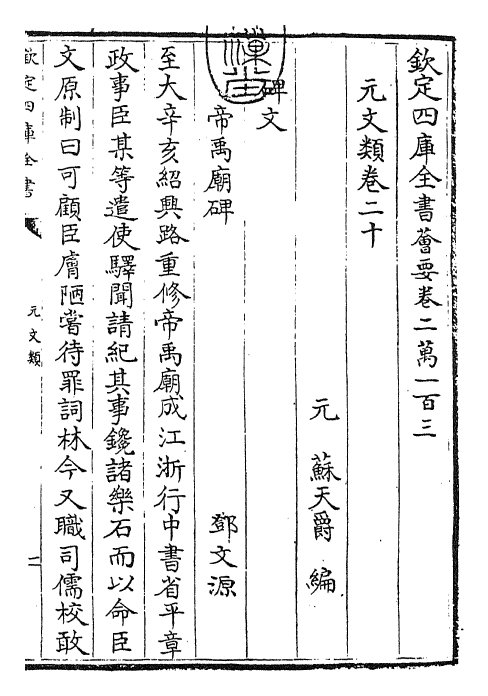 欽定四庫全書薈要卷二萬一百三
元文類卷二十
元　蘇天爵　編
碑文
帝禹廟碑　鄧文源
至大辛亥紹興路重修帝禹廟成江浙行中書省平章
政事臣某等遣使驛聞請紀其事鑱諸樂石而以命臣
文原制曰可顧臣膚陋嘗待罪詞林今又職司儒校敢
欽定四庫全書
元文類